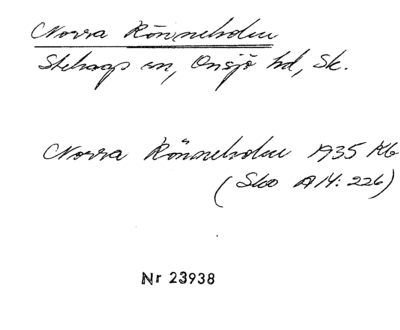 Norra Rönneholm
Stehags sn, Onsjö hd, Sk.
Norra Rönneholm 1935 Kb
(Sko A14: 226)
Nr 23938